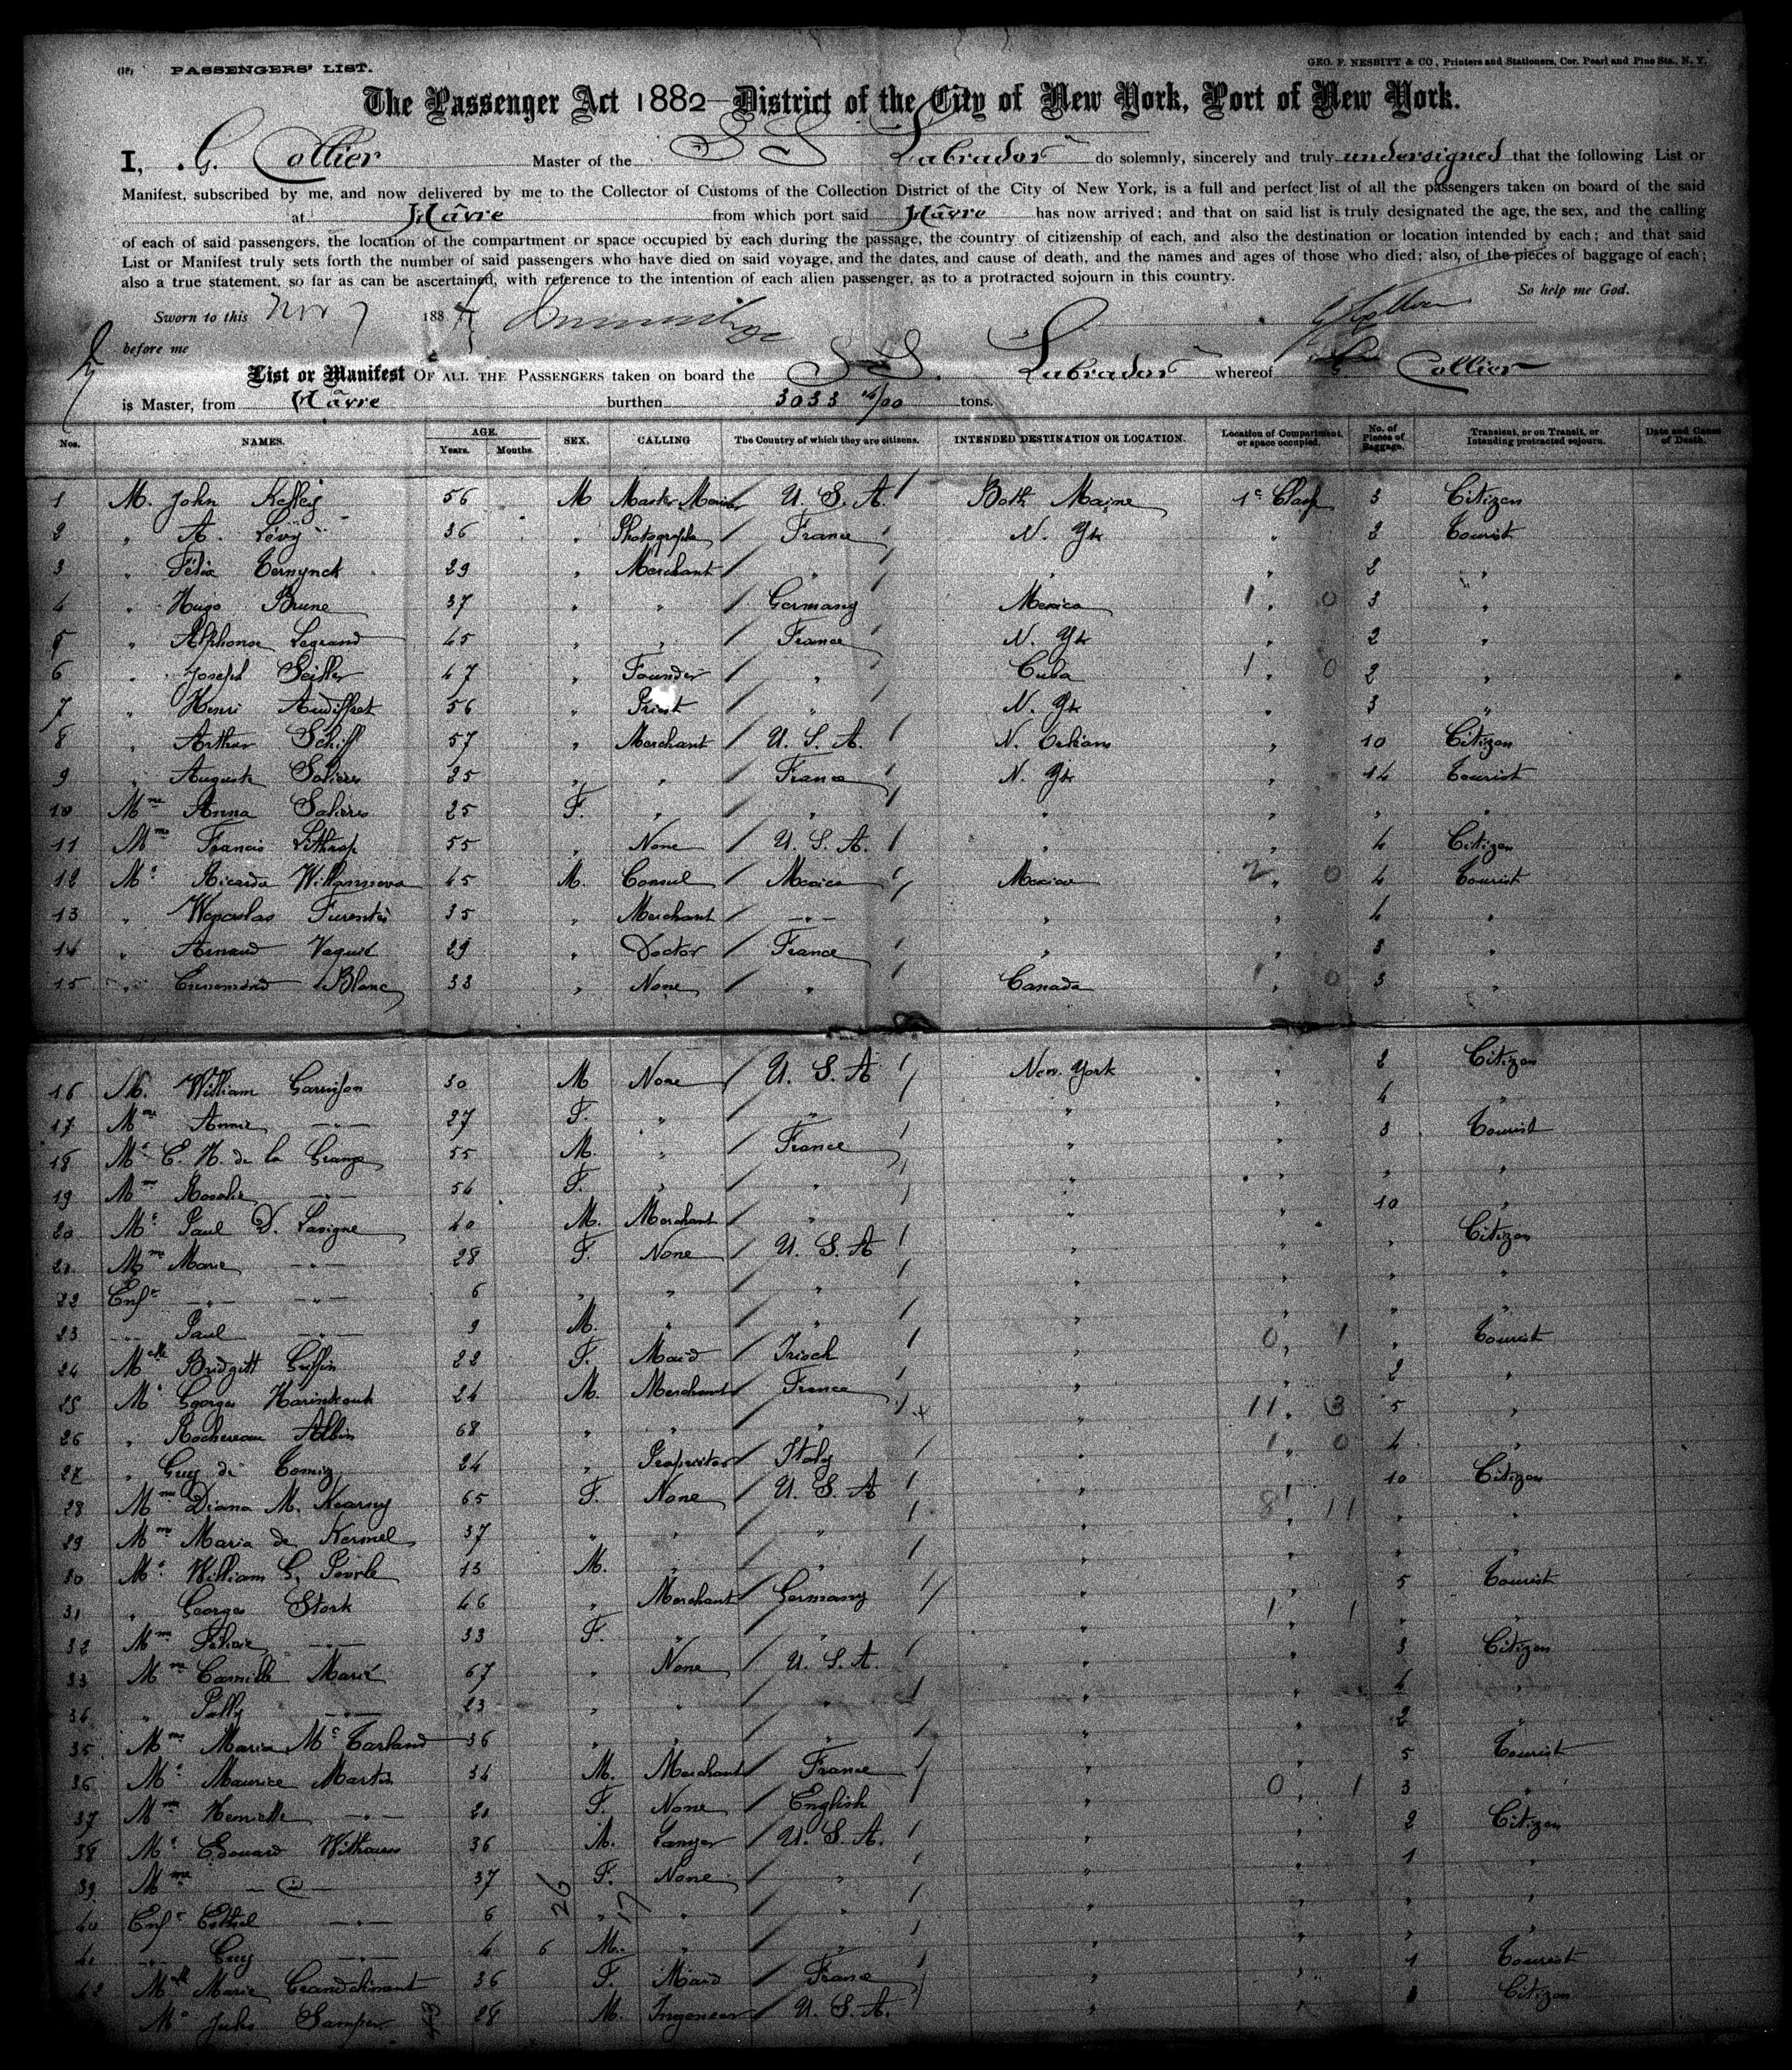 (18) PASSENGERS' LIST.
GEO. F. NESBITT & CO., Printers and Stationers, Cor. Pearl and Pine Sts., N. Y.
The Passenger Act 1882 District of the City of New York, Port of New York.
I, G. Collier Master of the SS Labrador do solemnly, sincerely and truly undersigned that the following List or
Manifest, subscribed by me, and now delivered by me to the Collector of Customs of the Collection District of the City of New York, is a full and perfect list of all the passengers taken on board of the said
at Hâvre from which port said Hâvre has now arrived; and that on said list is truly designated the age, the sex, and the calling
of each of said passengers, the location of the compartment or space occupied by each during the passage, the country of citizenship of each, and also the destination or location intended by each; and that said
List or Manifest truly sets forth the number of said passengers who have died on said voyage, and the dates, and cause of death, and the names and ages of those who died; also, of the pieces of baggage of each;
also a true statement, so far as can be ascertained, with reference to the intention of each alien passenger, as to a protracted sojourn in this country.
So help me God.
Sworn to this Nov 7 188
before me
G Collier
List or Manifest OF ALL THE PASSENGERS taken on board the SS. Labrador whereof G. Collier
is Master, from Hâvre burthen 3033 /00 tons.
Nos. NAMES. AGE. Years. Months. SEX. CALLING The Country of which they are citizens. INTENDED DESTINATION OR LOCATION. Location of Compartment, or space occupied. No. of Pieces of Baggage. Transient, or on Transit, or Intending protracted sojourn. Date and Cause of Death.
1 M. John Kelley 56 M Master U. S. A. Bath Maine 1e Class 3 Citizen
2 " A. Lévy 36 " Photographe France N. Yk " 2 Tourist
3 " Félix Ternynck 29 " Merchant " " " 2 "
4 " Hugo Brune 37 " " Germany Mexico 1 " 0 3 "
5 " Alphonse Legrand 45 " " France N. Yk " 2 "
6 " Joseph 47 " Founder " Cuba 1 " 0 2 "
7 " Henri Audiffret 56 " Priest " N. Yk " 3 "
8 " Arthur Schiff 57 " Merchant U. S. A. N. Orléans " 10 Citizen
9 " Auguste Solières 25 " " France N. Yk " 14 Tourist
10 Mme Anna Solières 25 F. " " " " " "
11 Mme Francis 55 " None U. S. A. " " 4 Citizen
12 Mr Ricardo Villanueva 45 M. Consul Mexico Mexico 2 " 0 4 Tourist
13 " 35 " Merchant -"- " " 4 "
14 " Arnaud 29 " Doctor France " " 3 "
15 " Blanc 33 " None " Canada 1 " 0 3 "
16 M. William Garrison 30 M None U. S. A New York " 2 Citizen
17 Mme Annie -"- 27 F. " " " " 4 "
18 Mr E. H. de la Grange 55 M. " France " " 3 Tourist
19 Mme Rosalie -"- 54 F. " " " " " "
20 Mr Paul D. Lavigne 40 M. Merchant " " " 10 "
21 Mme Marie -"- 28 F. None U. S. A " " " Citizen
22 Enft -"- -"- 6 " " " " " " "
23 -"- Paul -"- 9 M. " " " " " "
24 Melle Bridgitt Griffin 22 F. Maid Irisch " 0 " 1 " Tourist
25 Mr Georges 24 M. Merchant France " " 2 "
26 " Rochereau Albin 68 " " " " 11 " 3 5 "
27 " Guy di 24 " Proprietor Italy " 1 " 0 4 "
28 Mme Diana M. Kearny 65 F. None U. S. A " " 10 Citizen
29 Mme Maria de Kermel 37 " " " " 8 " 11 " "
30 Mr William G. 13 M. " " " " " "
31 " Georges Stork 46 " Merchant Germany " " 5 Tourist
32 Mme -"- 33 F. " " " 1 " 1 " "
33 Mme Camille Marié 67 " None U. S. A. " " 3 Citizen
34 " -"- 23 " " " " " 4 "
35 Mme Maria Mc Carland 36 " " " " " 2 "
36 Mr Maurice Martin 34 M. Merchant France " " 5 Tourist
37 Mme Henriette -"- 21 F. None English " 0 " 1 3 "
38 Mr Edouard 36 M. Lawyer U. S. A. " " 2 Citizen
39 Mme -"- 37 F. None " " " 1 "
40 Enft Ethel -"- 6 " " " " " " "
41 -"- Guy -"- 4 6 M. " " " " " "
42 Melle Marie 36 F. Maid France " " 1 Tourist
Mr Jules Samper 28 M. Ingeneer U. S. A. " " Citizen
26 17